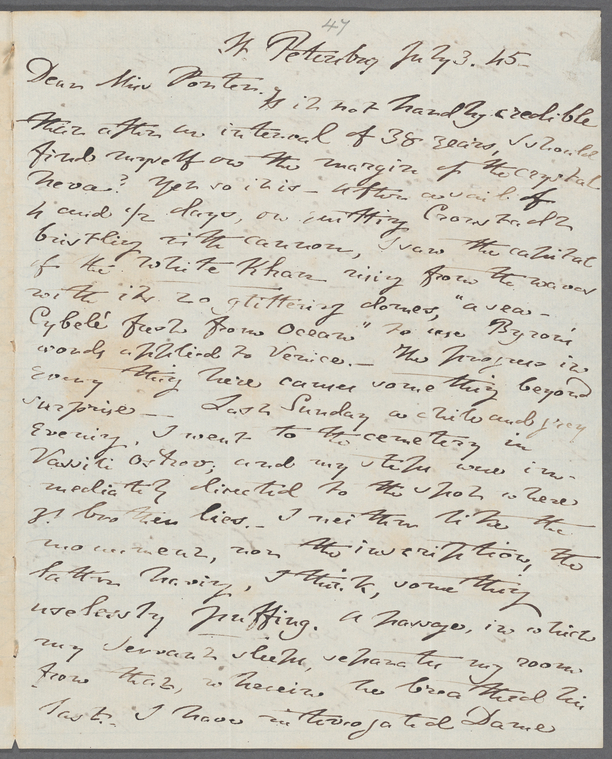 47
St Petersburg July 3. 45-
Dear Miss Porter.
Is it not hardly credible
that after an interval of 38 years, I should
find myself on the margin of the crystal
Neva? Yet so it is - After a sail of
4 and 1/2 days, on quitting Cronstadt
bristling with cannon, I saw the capital
of the White Khan rising from the waves
with its glittering domes, "a sea-
Cybelé fresh from Ocean" to use Byron's
words applied to Venice. - The progress in
every thing here causes something beyond
surprise - Last Sunday a chill and grey
Evening, I went to the cemetery in
Vassili Ostrov; and my steps were im-
mediately directed to the spot where
yr brother lies. - I neither like the
monument, nor the inscription, the
latter having, I think, something
uselessly puffing. A passage, in which
my servant sleeps, separates my room
from that, wherein he breathed his
last. I have interrogated Dame